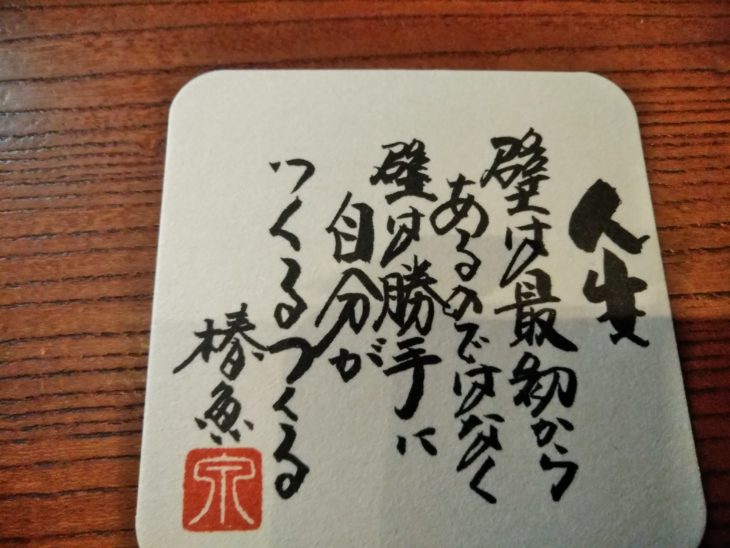 人生
壁は最初から
あるのではなく
壁は勝手に
自分が
つくるつくる
椿魚
泉